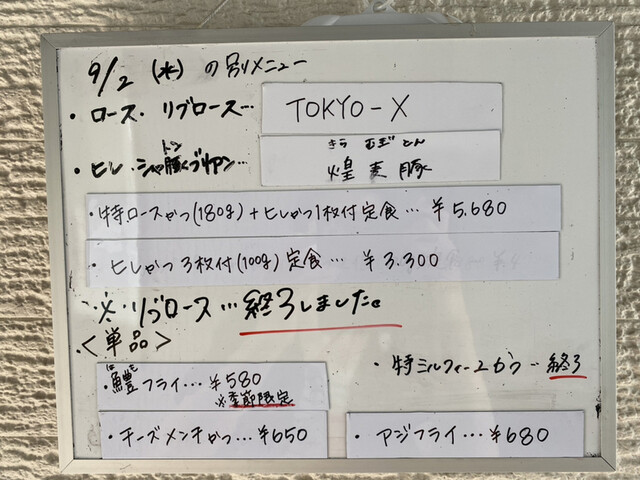 9/2 (水) の別メニュー
・ロース・リブロース… TOKYO-X
トン きら むぎ とん
・ヒレ・シャ豚ブリアン… 煌麦豚
・特ロースかつ(180g)+ヒレかつ1枚付定食…¥5,680
・ヒレかつ3枚付(100g)定食…¥3,300
※・リブロース…終了しました。
<単品>
はも
・鱧フライ…¥580
※季節限定
・特ミルフィーユかつ…終了
・チーズメンチかつ…¥650
・アジフライ…¥680